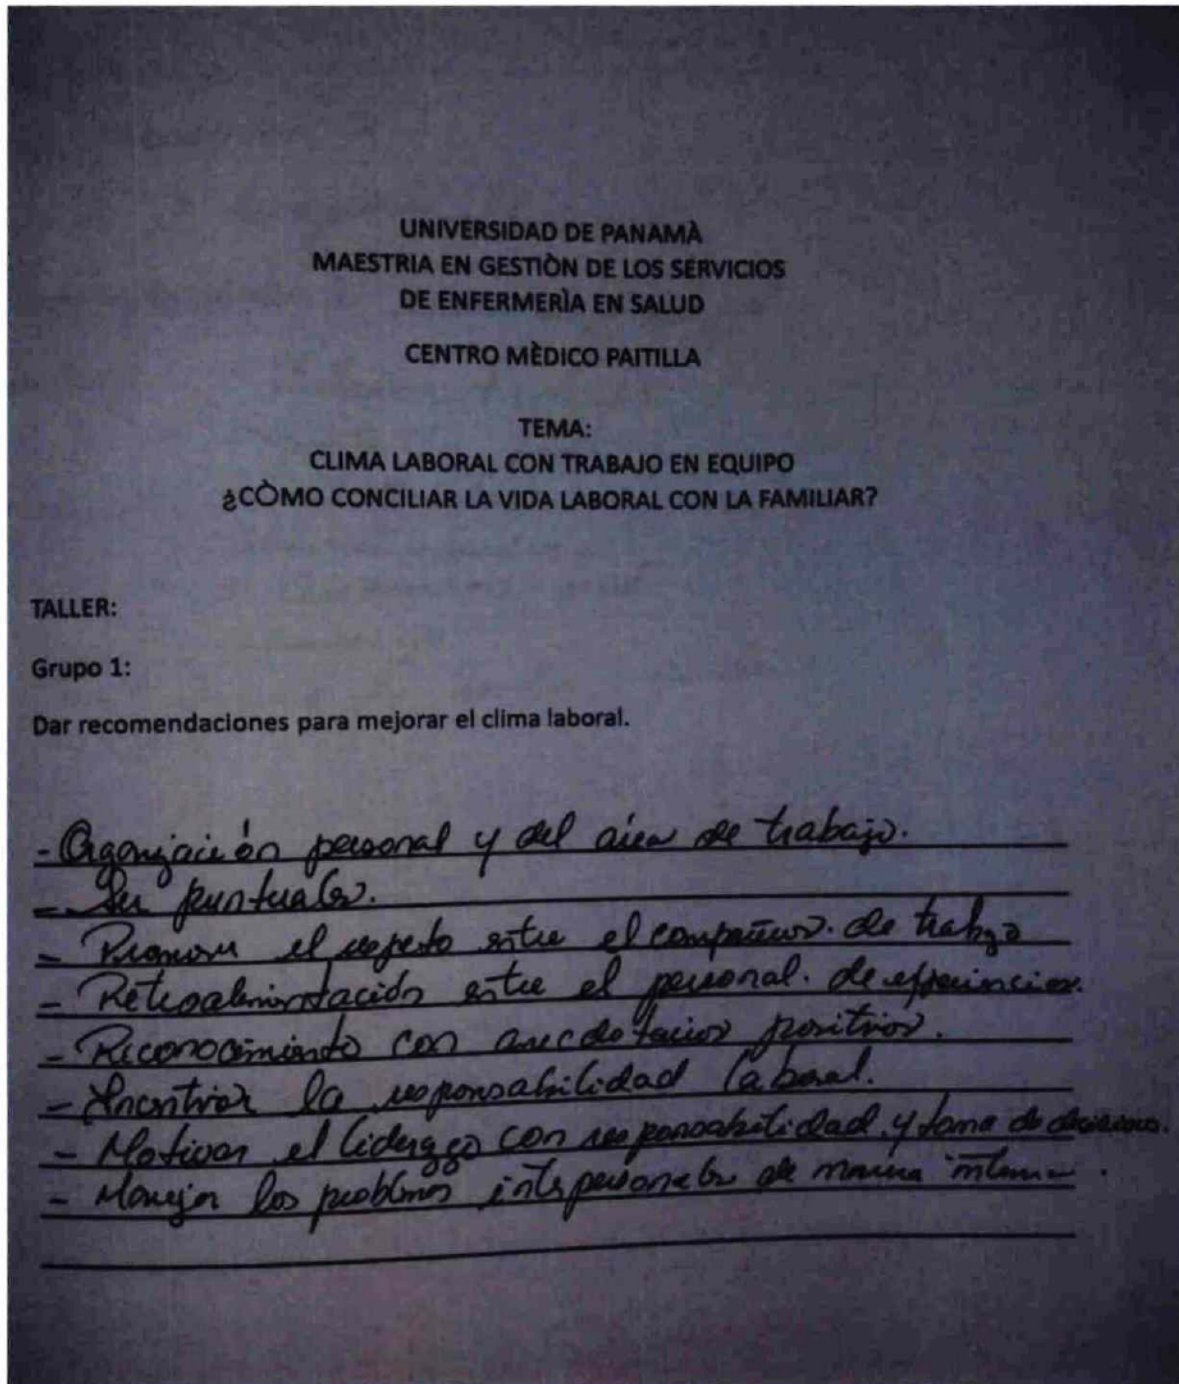 UNIVERSIDAD DE PANAMÀ
MAESTRIA EN GESTIÒN DE LOS SERVICIOS
DE ENFERMERÌA EN SALUD
CENTRO MÈDICO PAITILLA
TEMA:
CLIMA LABORAL CON TRABAJO EN EQUIPO
¿CÒMO CONCILIAR LA VIDA LABORAL CON LA FAMILIAR?
TALLER:
Grupo 1:
Dar recomendaciones para mejorar el clima laboral.
- Organización personal y del área de trabajo.
- Ser puntuales.
- Promover el respeto entre el compañeros. de trabajo
- Retroalimentación entre el personal. de experiencias.
- Reconocimiento con anecdotarios positivos.
- Incentivar la responsabilidad laboral.
- Motivar el liderazgo con responsabilidad y toma de decisiones.
- Manejar los problemas interpersonales de manera interna.